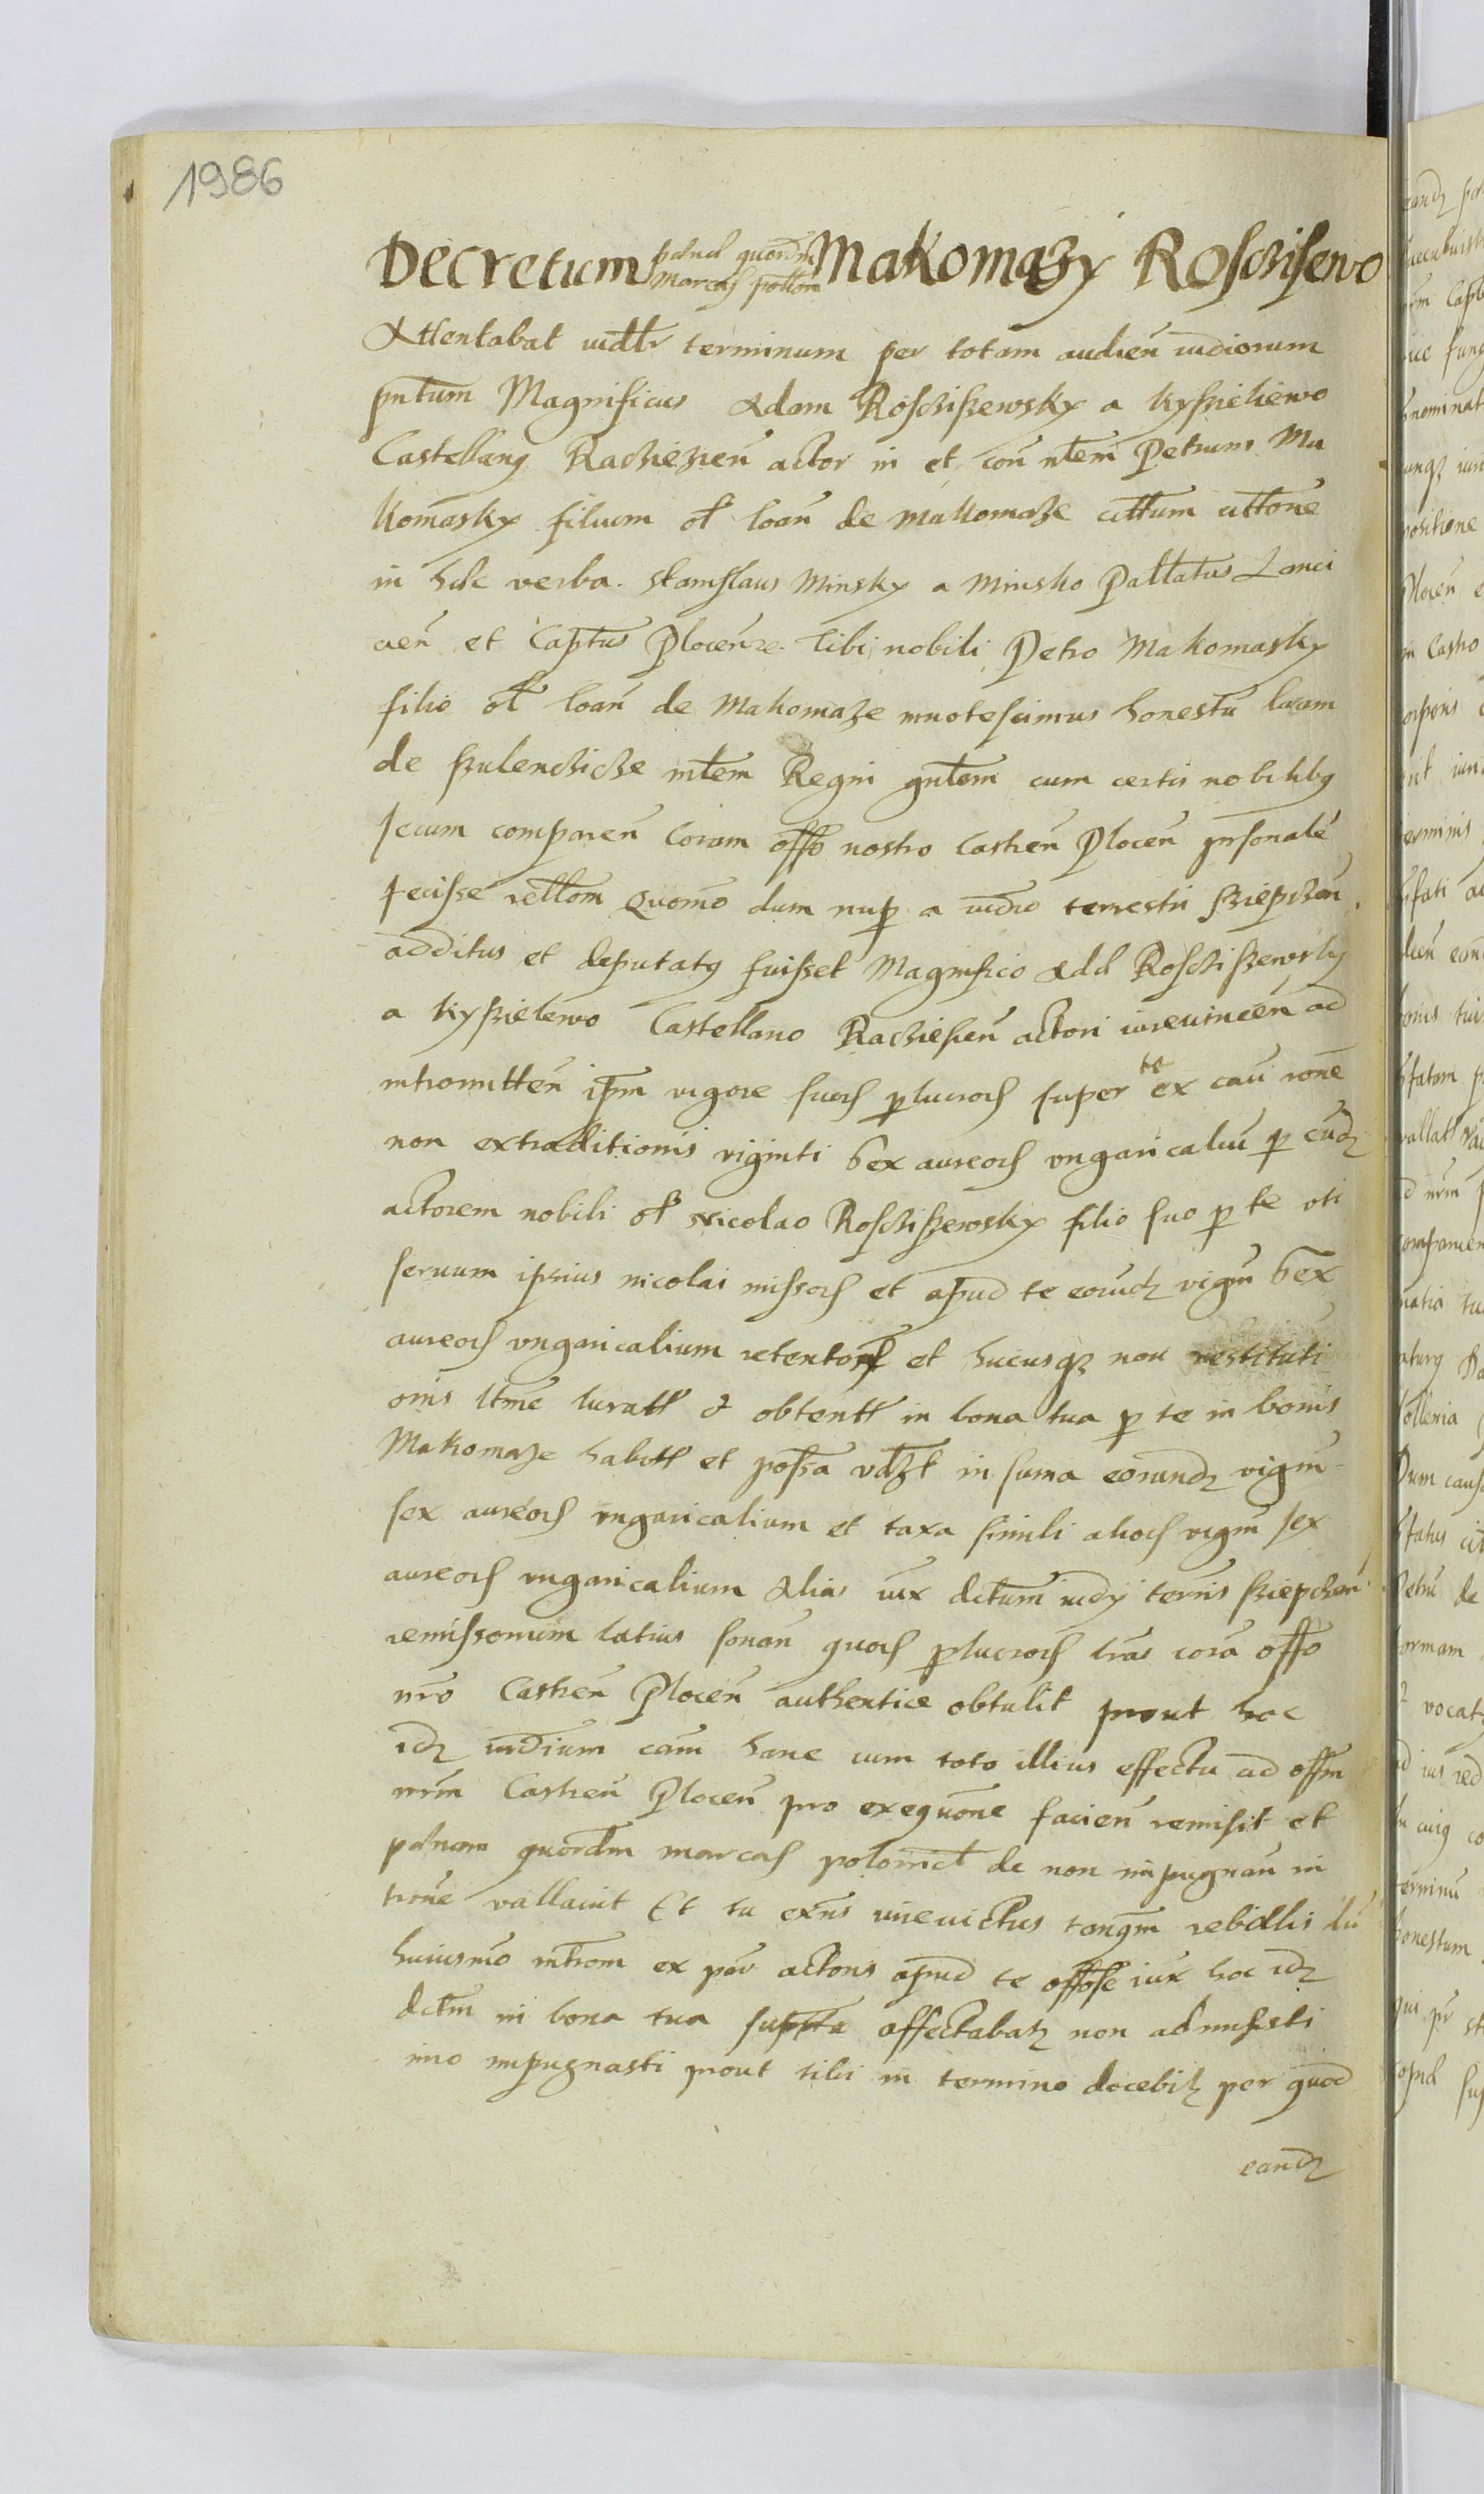 1986
Decretum Makomazy Rosczisewo
pdnal quordm
Marcas pollon
Attentabat iudlr terminum per totam audien iudiorum
pntum Magnificus Adam Rosczissewsky a Kyssielewo
Castellang Raczięzien actor in et con nlem Petrum Ma
komasky filium ol Ioan de Makomaze cittum cittone
in hec verba. Stanislaus Minsky a Minsko Pallatus Lanci
cien et Captus Plocen Tibi nobili Petro Makomasky
filio ol Ioan de Makomaze innotescimus honestu lucam
de szulencziecze mtem Regni gntem cum certis nobilibg
secum comparen coram offo nostro Castren Plocen psonale
fecisse rellom Quomo dum nup a iudio terrestri Szrepczen
additus et deputatg fuisset Magnifico Add Rosczissewsky
a Kyssielewo Castellano Raczięsen actori iureuincen ad
intromitten ipm vigore suor plucror super te ex cau rone
non extraditionis viginti sex aureor vngaricaliu p eudz
actorem nobili ol Nicolao Rosczissewsky filio suo p te oti
seruum ipsius nicolai missor et apud te eorudz vigin sex
aureor vngaricalium retentor et hucusqz non restituti
onis ltme lucratt & obtentt in bona tua p te in bonis
Makomaze habitt et possa vdzt in suma eorundz vigin
sex aureor vngaricalium et taxa simili alior vigin sex
aureor vngaricalium Alias iux dctum iudy terris Szrepczen
remissorium latius sonan quor plucror lras cora offo
nro Castren Plocen authentice obtulit prout hoc
idz iudium cam hanc cum toto illius effectu ad offm
nrm Castren Plocen pro exequone facien remisit et
pdnam quordm marcas polonicl de non impugnan in
trone vallauit Et tu exns iureuictus tanqm rebellis du
huiusmo introm ex par actoris apud te iux hoc idz
dctm in bona tua affectabatz non admisisti
imo impugnasti prout tibi in termino docebitz per quod
eandz